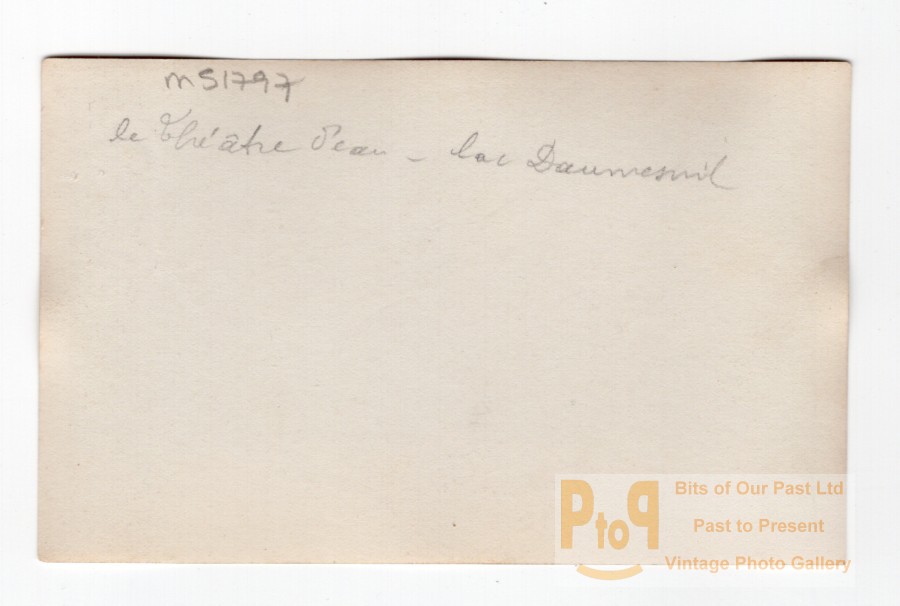 mS1797
le Théâtre d'eau - lac Daumesnil
PtoP
Bits of Our Past Ltd
Past to Present
Vintage Photo Gallery